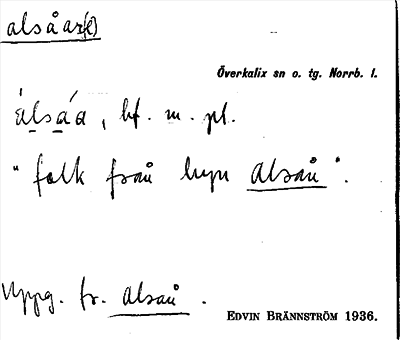 alsåar(e)
Överkalix sn o. tg. Norrb. l.
álsáa, bf. m. pl.
"folk från byn Alsån".
Uppg. fr. Alsån.
EDVIN BRÄNNSTRÖM 1936.